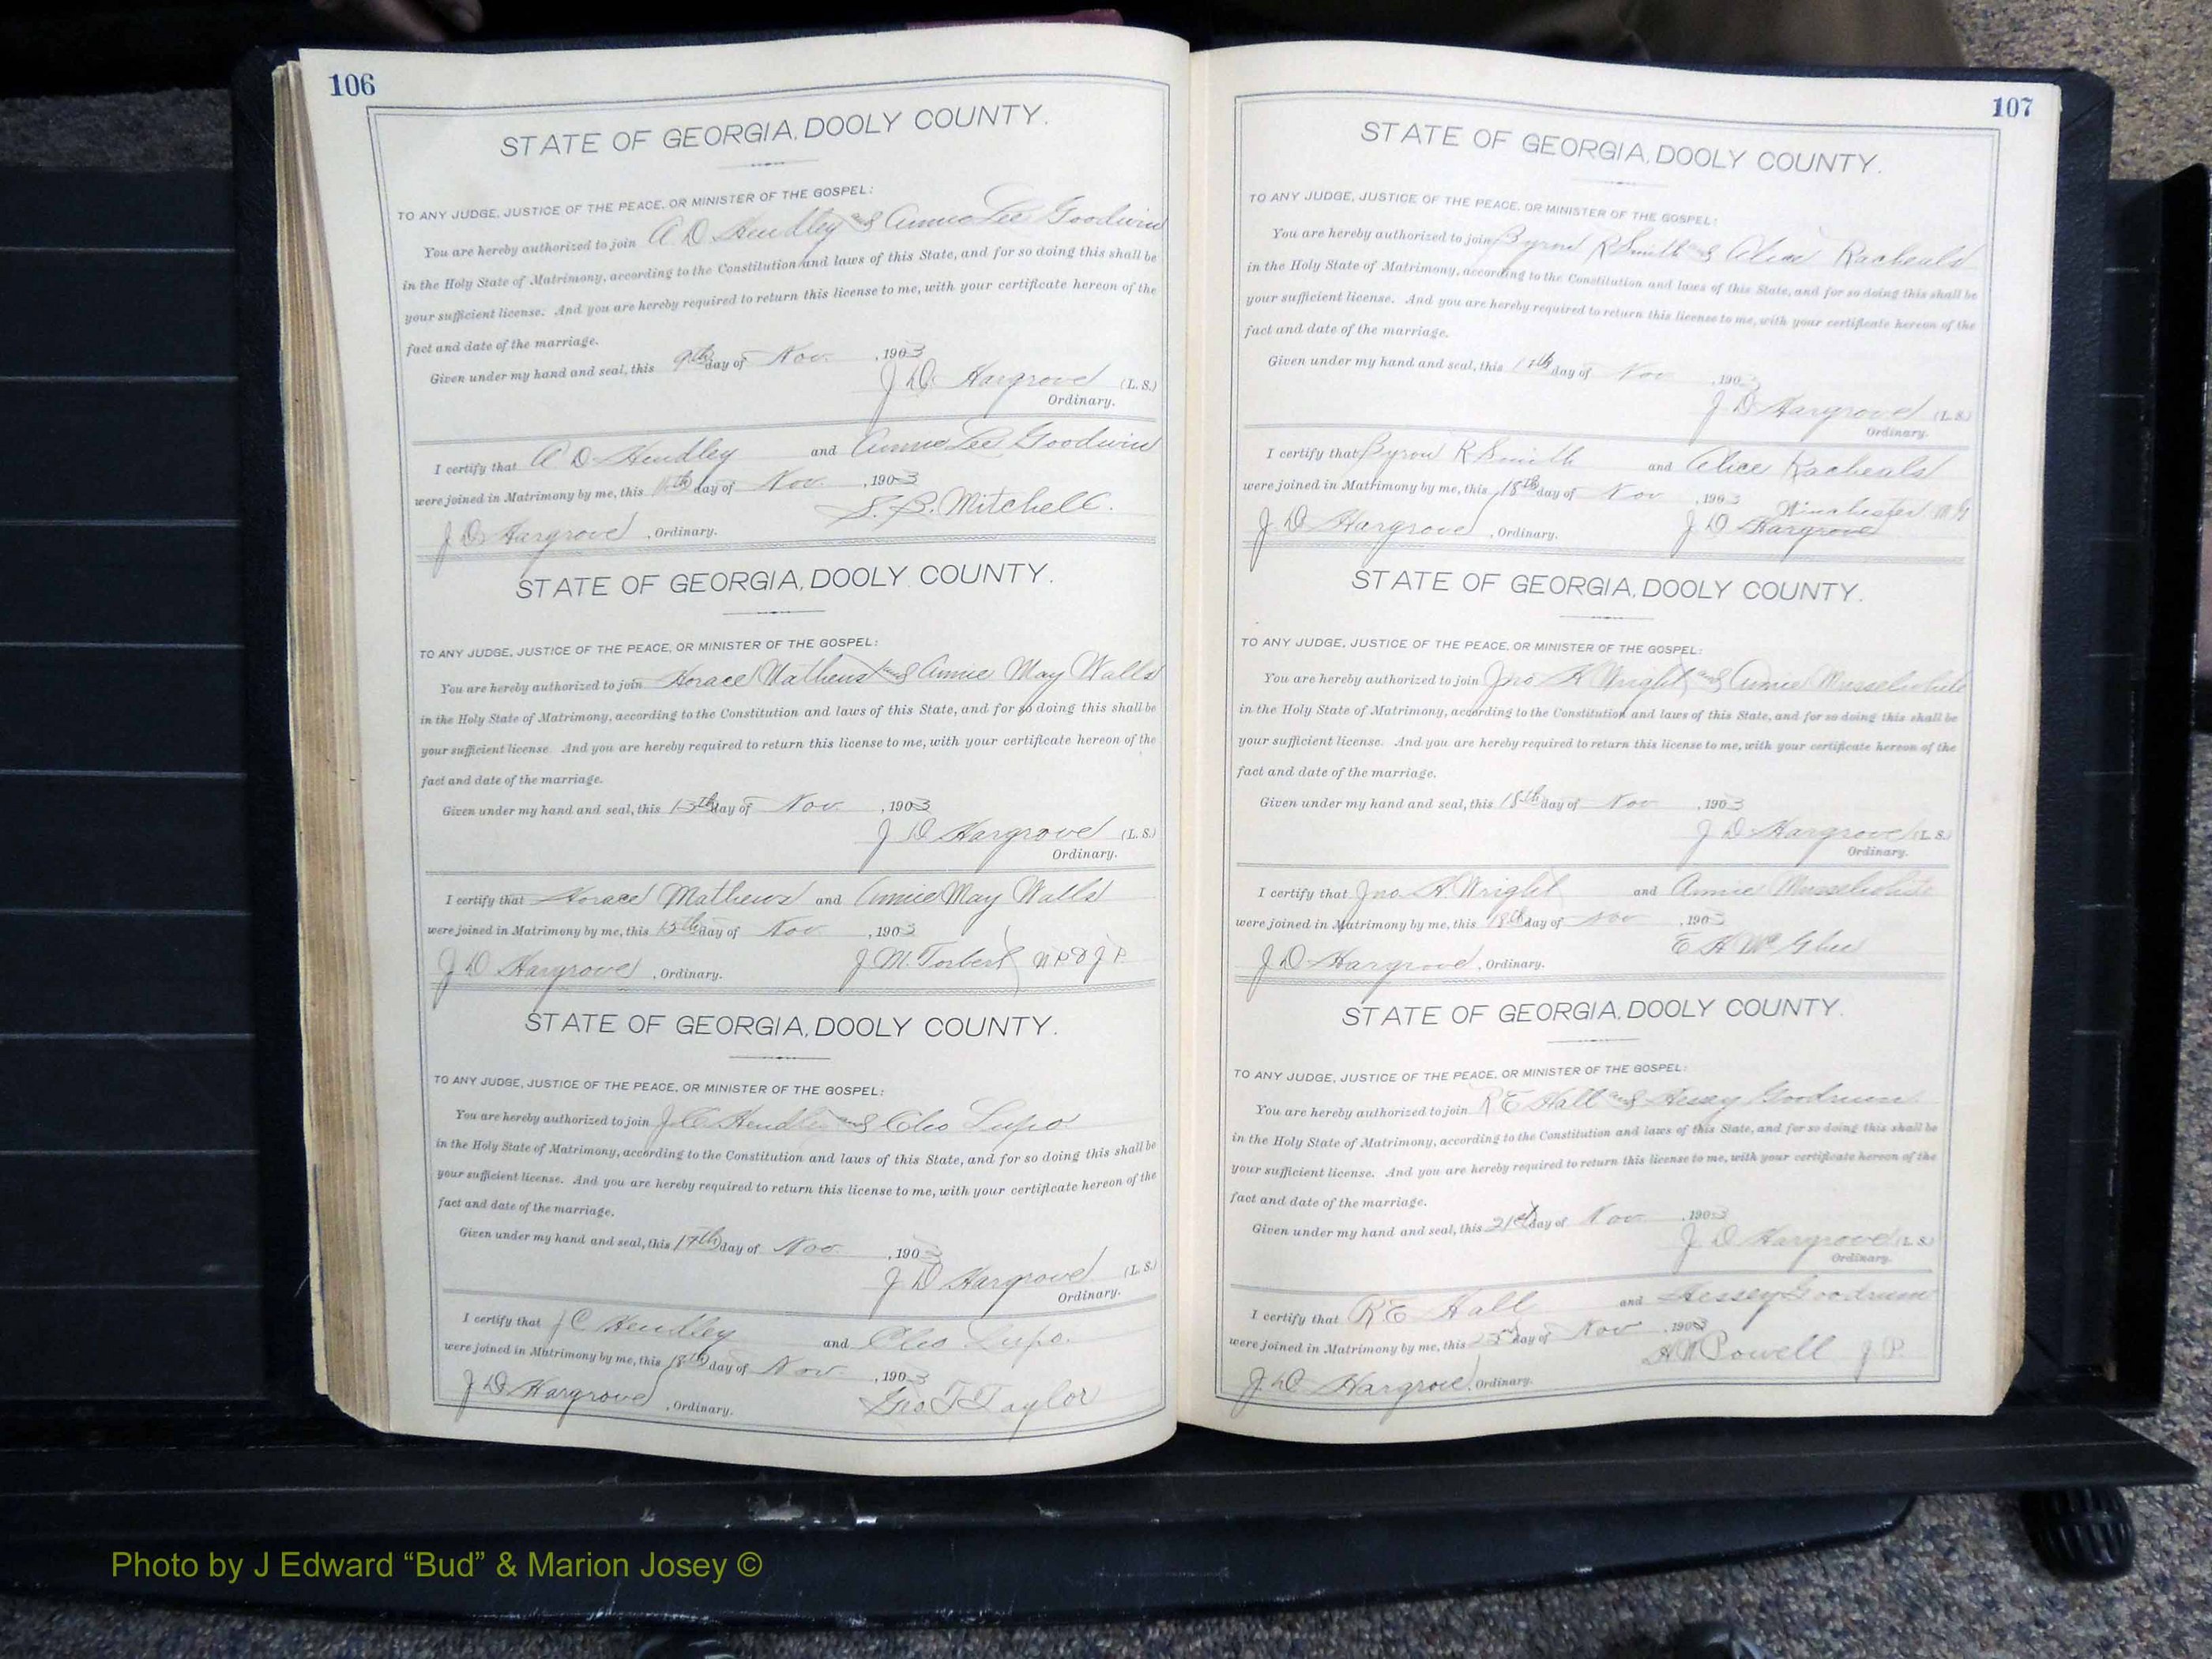 106
STATE OF GEORGIA, DOOLY COUNTY.
TO ANY JUDGE, JUSTICE OF THE PEACE, OR MINISTER OF THE GOSPEL:
You are hereby authorized to join A D Hendley and Annie Lee Goodwin
in the Holy State of Matrimony, according to the Constitution and laws of this State, and for so doing this shall be
your sufficient license. And you are hereby required to return this license to me, with your certificate hereon of the
fact and date of the marriage.
Given under my hand and seal, this 9th day of Nov. , 1903
J D Hargrove (L. S.)
Ordinary.
I certify that A D Hendley and Annie Lee Goodwin
were joined in Matrimony by me, this day of Nov. , 1903
S. B. Mitchell.
J D Hargrove , Ordinary.
STATE OF GEORGIA, DOOLY COUNTY.
TO ANY JUDGE, JUSTICE OF THE PEACE, OR MINISTER OF THE GOSPEL:
You are hereby authorized to join Horace Mathews and Annie May Walls
in the Holy State of Matrimony, according to the Constitution and laws of this State, and for so doing this shall be
your sufficient license. And you are hereby required to return this license to me, with your certificate hereon of the
fact and date of the marriage.
Given under my hand and seal, this 15th day of Nov. , 1903
J D Hargrove (L. S.)
Ordinary.
I certify that Horace Mathews and Annie May Walls
were joined in Matrimony by me, this 15th day of Nov. , 1903
J D Hargrove , Ordinary. J. M. Torbert N P & J P.
STATE OF GEORGIA, DOOLY COUNTY.
TO ANY JUDGE, JUSTICE OF THE PEACE, OR MINISTER OF THE GOSPEL:
You are hereby authorized to join J C Hendley and Cleo Lupo
in the Holy State of Matrimony, according to the Constitution and laws of this State, and for so doing this shall be
your sufficient license. And you are hereby required to return this license to me, with your certificate hereon of the
fact and date of the marriage.
Given under my hand and seal, this 17th day of Nov. , 1903
J D Hargrove (L. S.)
Ordinary.
I certify that J C Hendley and Cleo Lupo.
were joined in Matrimony by me, this 18th day of Nov. , 1903
J D Hargrove , Ordinary. Geo. T Taylor
107
STATE OF GEORGIA, DOOLY COUNTY.
TO ANY JUDGE, JUSTICE OF THE PEACE, OR MINISTER OF THE GOSPEL:
You are hereby authorized to join Byron R Smith and Alice Racheals
in the Holy State of Matrimony, according to the Constitution and laws of this State, and for so doing this shall be
your sufficient license. And you are hereby required to return this license to me, with your certificate hereon of the
fact and date of the marriage.
Given under my hand and seal, this 17th day of Nov , 1903
J. D Hargrove (L. S.)
Ordinary.
I certify that Byron R Smith and Alice Racheals
were joined in Matrimony by me, this 18th day of Nov , 1903
Winchester M G
J. D Hargrove , Ordinary. J D Hargrove
STATE OF GEORGIA, DOOLY COUNTY.
TO ANY JUDGE, JUSTICE OF THE PEACE, OR MINISTER OF THE GOSPEL:
You are hereby authorized to join Jno H Wright and Annie Musselwhite
in the Holy State of Matrimony, according to the Constitution and laws of this State, and for so doing this shall be
your sufficient license. And you are hereby required to return this license to me, with your certificate hereon of the
fact and date of the marriage.
Given under my hand and seal, this 18th day of Nov , 1903
J D Hargrove (L. S.)
Ordinary.
I certify that Jno. H. Wright and Annie Musselwhite
were joined in Matrimony by me, this 18th day of Nov , 1903
E H McGhee
J D Hargrove , Ordinary.
STATE OF GEORGIA, DOOLY COUNTY.
TO ANY JUDGE, JUSTICE OF THE PEACE, OR MINISTER OF THE GOSPEL:
You are hereby authorized to join R E Hall and Hessey Goodrum
in the Holy State of Matrimony, according to the Constitution and laws of this State, and for so doing this shall be
your sufficient license. And you are hereby required to return this license to me, with your certificate hereon of the
fact and date of the marriage.
Given under my hand and seal, this 21st day of Nov , 1903
J D Hargrove (L. S.)
Ordinary.
I certify that R. E Hall and Hessey Goodrum
were joined in Matrimony by me, this day of Nov , 1903
Powell J P.
J. D Hargrove , Ordinary.
Photo by J Edward “Bud” & Marion Josey ©